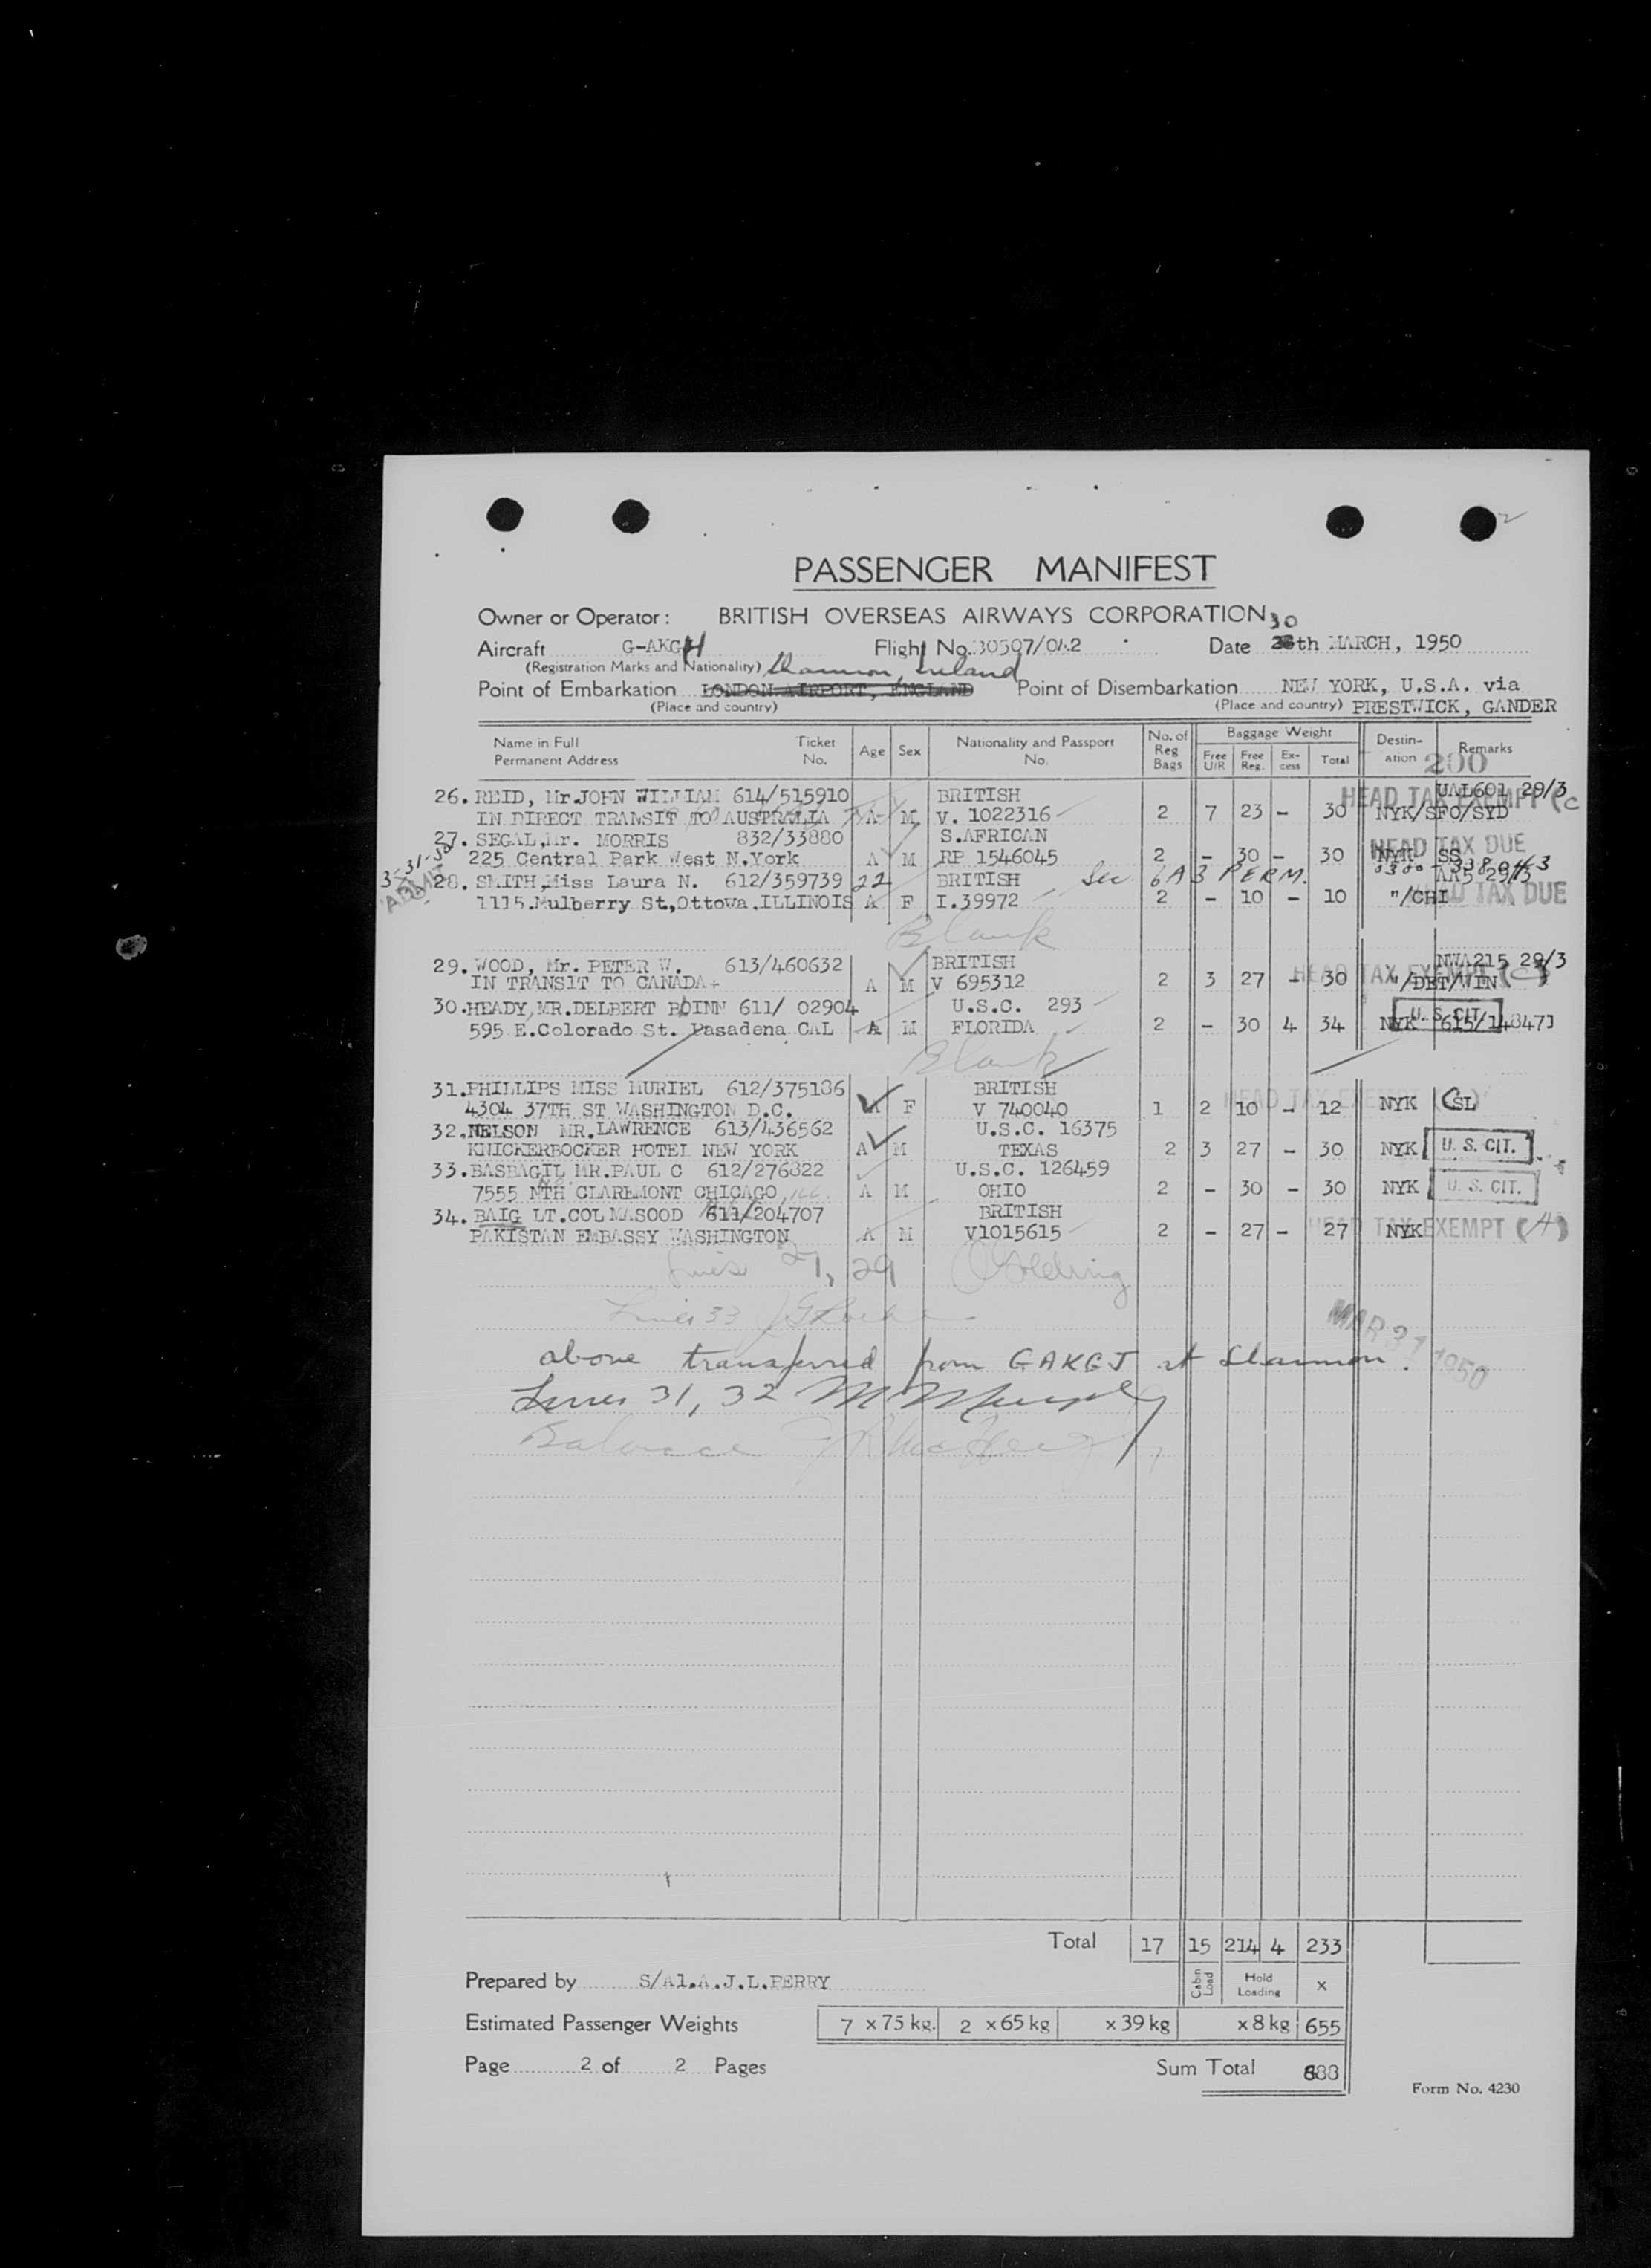 PASSENGER MANIFEST
Owner or Operator : BRITISH OVERSEAS AIRWAYS CORPORATION
30
Aircraft G-AKGH Flight No. 30507/042 Date 28th MARCH, 1950
(Registration Marks and Nationality) Shannon, Ireland
Point of Embarkation LONDON AIRPORT, ENGLAND Point of Disembarkation NEW YORK, U.S.A. via
(Place and country) (Place and country) PRESTWICK, GANDER
Name in Full Permanent Address Ticket No. Age Sex Nationality and Passport No. No. of Reg Bags Baggage Weight Free U/R Free Reg. Ex-cess Total Destin-ation Remarks
200
26. REID, Mr.JOHN WILLIAM 614/515910 BRITISH UAL601 29/3
IN DIRECT TRANSIT TO AUSTRALIA A M V. 1022316 2 7 23 - 30 NYK/SFO/SYD HEAD TAX EXEMPT (C
27. SEGAL, Mr. MORRIS 832/33880 S.AFRICAN HEAD TAX DUE
225 Central Park West N.York A M RP 1546045 2 - 30 - 30 NYK SS
3-31-50
28. SMITH, Miss Laura N. 612/359739 22 BRITISH Sec. 6A3 PERM. AA5 29/3
1115.Mulberry St, Ottowa.ILLINOIS A F I.39972 2 - 10 - 10 "/CHI HEAD TAX DUE
Blank
29. WOOD, Mr. PETER W. 613/460632 BRITISH NWA215 29/3
IN TRANSIT TO CANADA A M V 695312 2 3 27 - 30 "/DET/WIN HEAD TAX EXEMPT (C)
30. HEADY, MR.DELBERT 611/ 02904 U.S.C. 293 U. S. CIT.
595 E.Colorado St. Pasadena CAL A M FLORIDA 2 - 30 4 34 NYK 615/148473
Blank
31. PHILLIPS MISS MURIEL 612/375186 BRITISH HEAD TAX EXEMPT
4304 37TH ST WASHINGTON D.C. A F V 740040 1 2 10 - 12 NYK CSL
32. NELSON MR.LAWRENCE 613/436562 U.S.C. 16375
KNICKERBOCKER HOTEL NEW YORK A M TEXAS 2 3 27 - 30 NYK U. S. CIT.
33. BASBAGIL MR.PAUL C 612/276822 U.S.C. 126459
7555 NTH CLAREMONT CHICAGO, A M OHIO 2 - 30 - 30 NYK U. S. CIT.
34. BAIG LT.COL MASOOD 611/204707 BRITISH
PAKISTAN EMBASSY WASHINGTON A M V1015615 2 - 27 - 27 NYK HEAD TAX EXEMPT (A)
Lines 27, 29 Golding
Lines 33
MAR 31 1950
above transferred from GAKGJ at Shannon.
Lines 31, 32 M Murphy
Balance
Total 17 15 214 4 233
Prepared by S/A1.A.J.L.PERRY Cabin Load Hold Loading x
Estimated Passenger Weights 7 x 75 kg. 2 x 65 kg x 39 kg x 8 kg 655
Page 2 of 2 Pages Sum Total 888
Form No. 4230